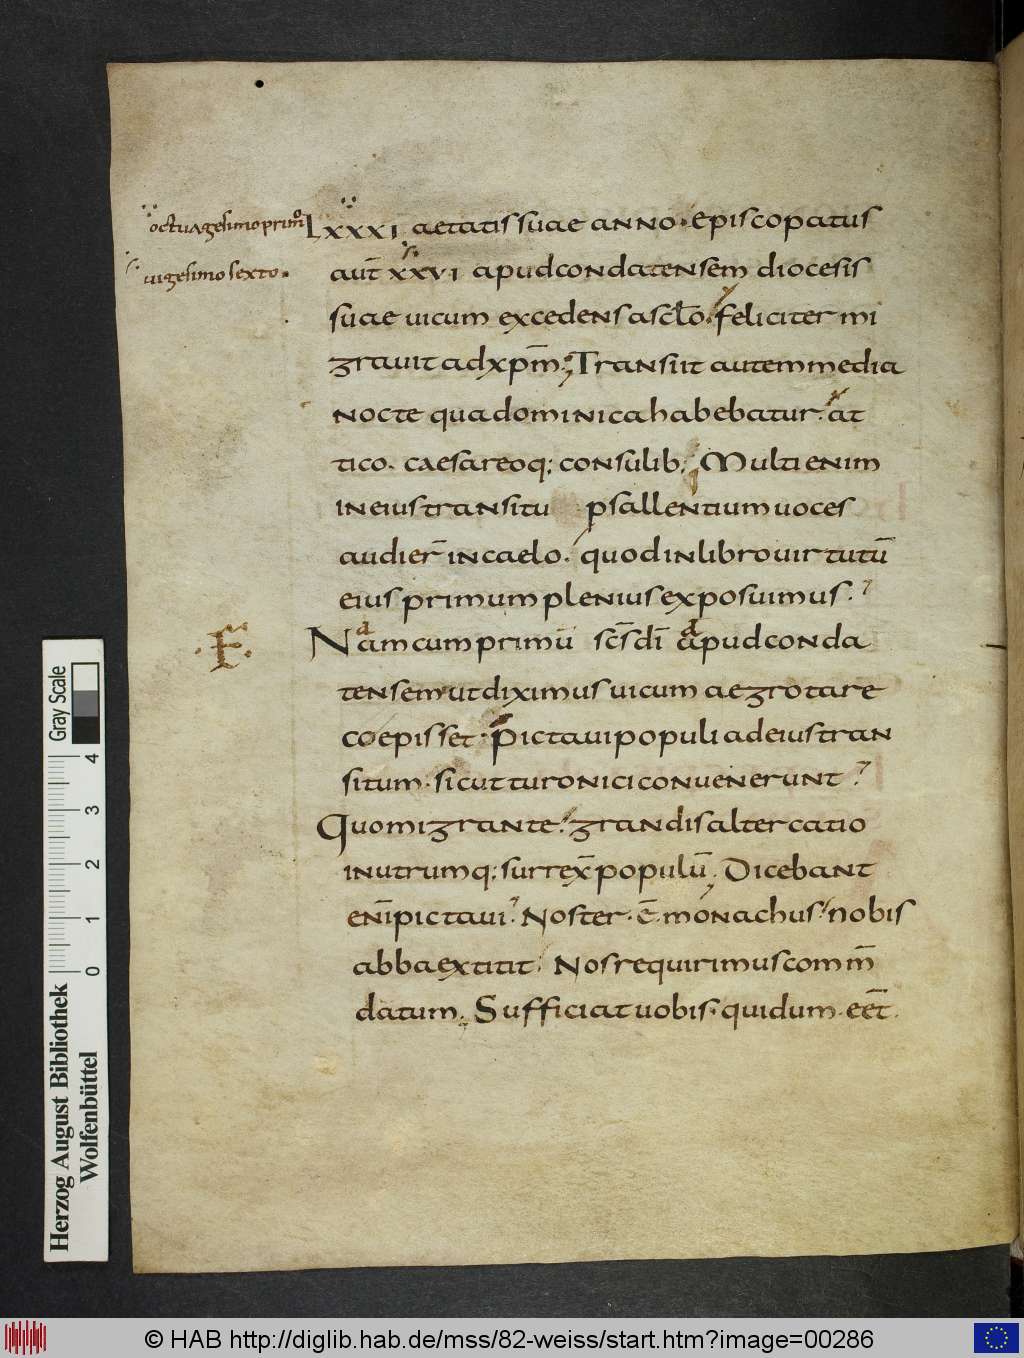 octuagesimo prim̊
LXXXI aetatis suae anno · episcopatus
uigesimo sexto ·
aut̄ xxvi apud condatensem diocesis
suae uicum excedens a sc̄lo · feliciter mi
grauit ad xp̄m · Transiit autem media
nocte qua dominica habebatur · at
tico · caesareoq; consulib; Multi enim
in eius transitu psallentium uoces
audier̄ in caelo · quod in libro uirtutū
eius primum plenius exposuimus ·
F
Nam cum primū sc̄s dī apud conda
d d
tensem ut diximus uicum aegrotare
coepisset · Pictaui populi ad eius tran
situm · sicut turonici conuenerunt
Quo migrante · grandis altercatio
in utrumq; surrex̄ populū · Dicebant
enī pictaui · Noster · ē · monachus · nobis
abba extitit · Nos requirimus comm̄
datum · Sufficiat uobis · quid um · eēt ·
Gray Scale
4 3 2 1 0
Herzog August Bibliothek
Wolfenbüttel
© HAB http://diglib.hab.de/mss/82-weiss/start.htm?image=00286